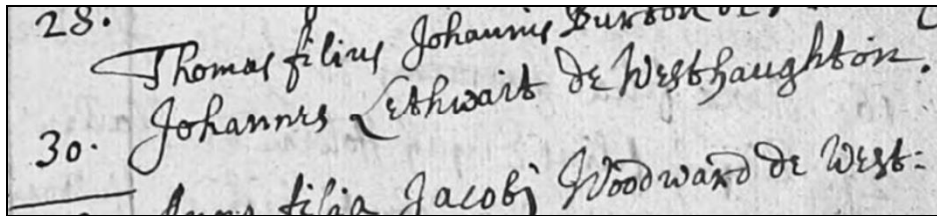 28.
Thomas filius Johannis Burton de
Johannes Lethwait de Westhaughton.
30.
filia Jacobj Woodward de West: